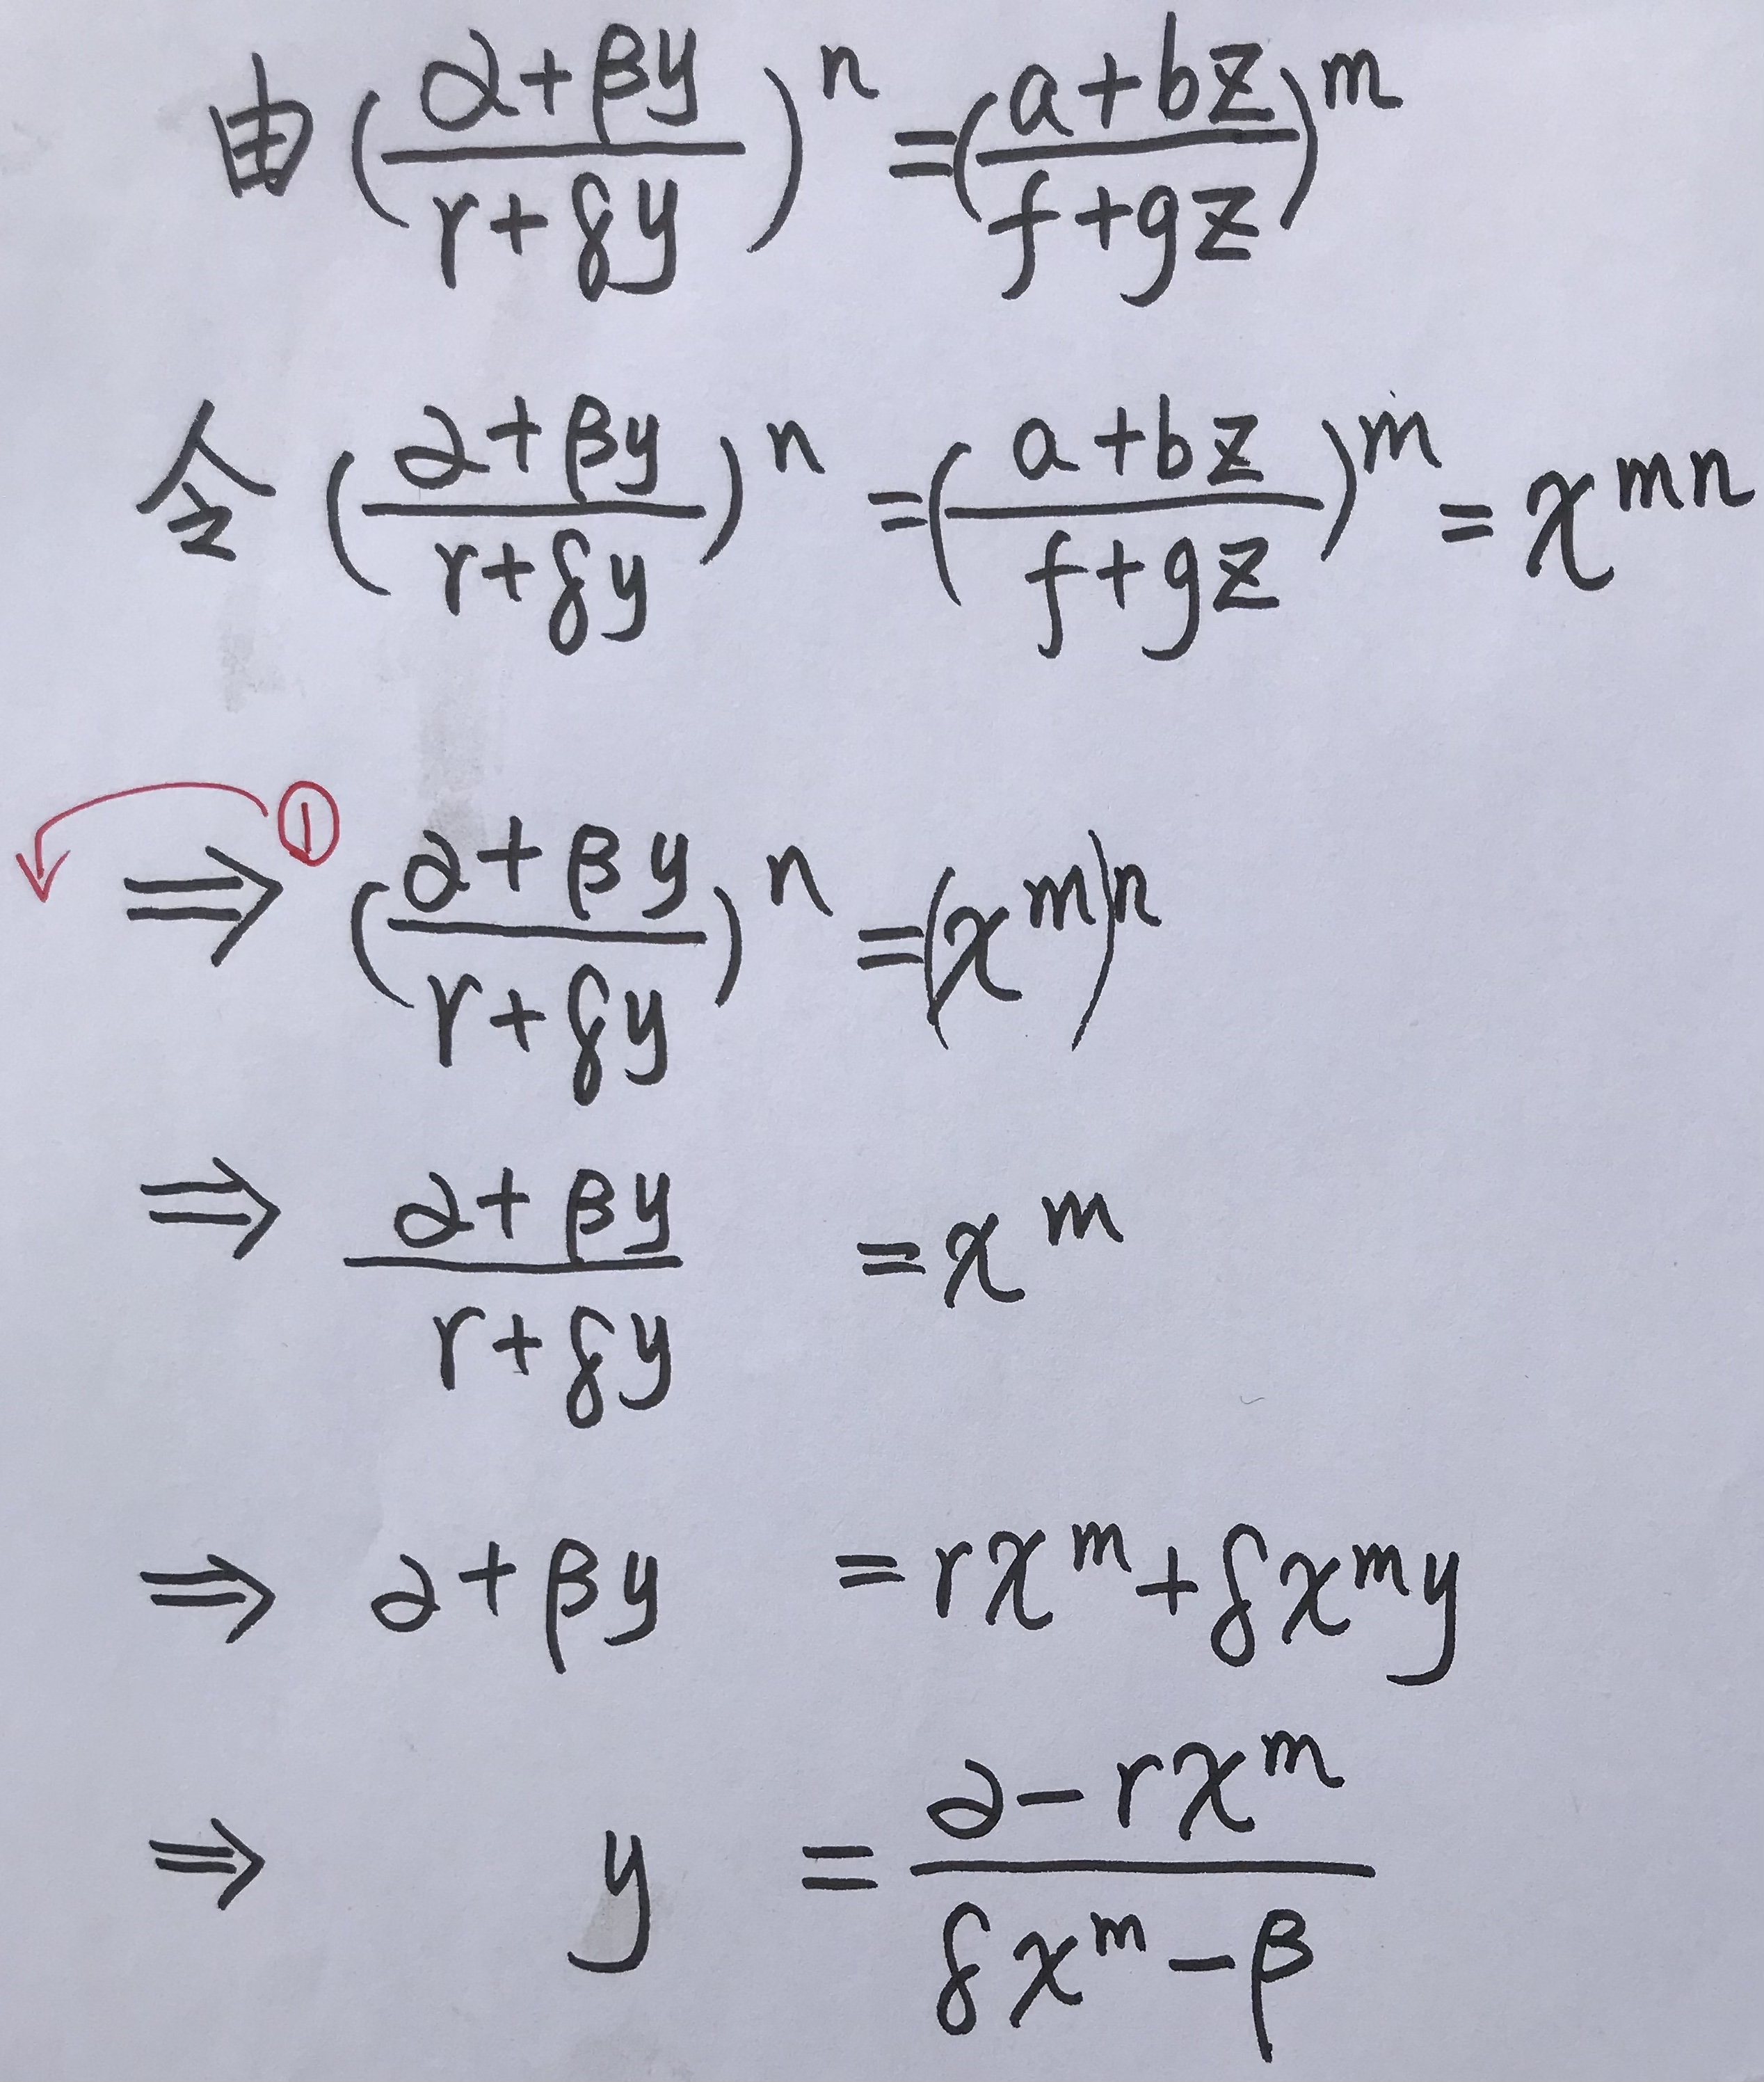 由 (\frac{α+βy}{r+δy})^n = (\frac{a+bz}{f+gz})^m
令 (\frac{α+βy}{r+δy})^n = (\frac{a+bz}{f+gz})^m = x^{mn}
⇒ ① (\frac{α+βy}{r+δy})^n = (x^m)^n
⇒ \frac{α+βy}{r+δy} = x^m
⇒ α+βy = rx^m+δx^my
⇒ y = \frac{α-rx^m}{δx^m-β}